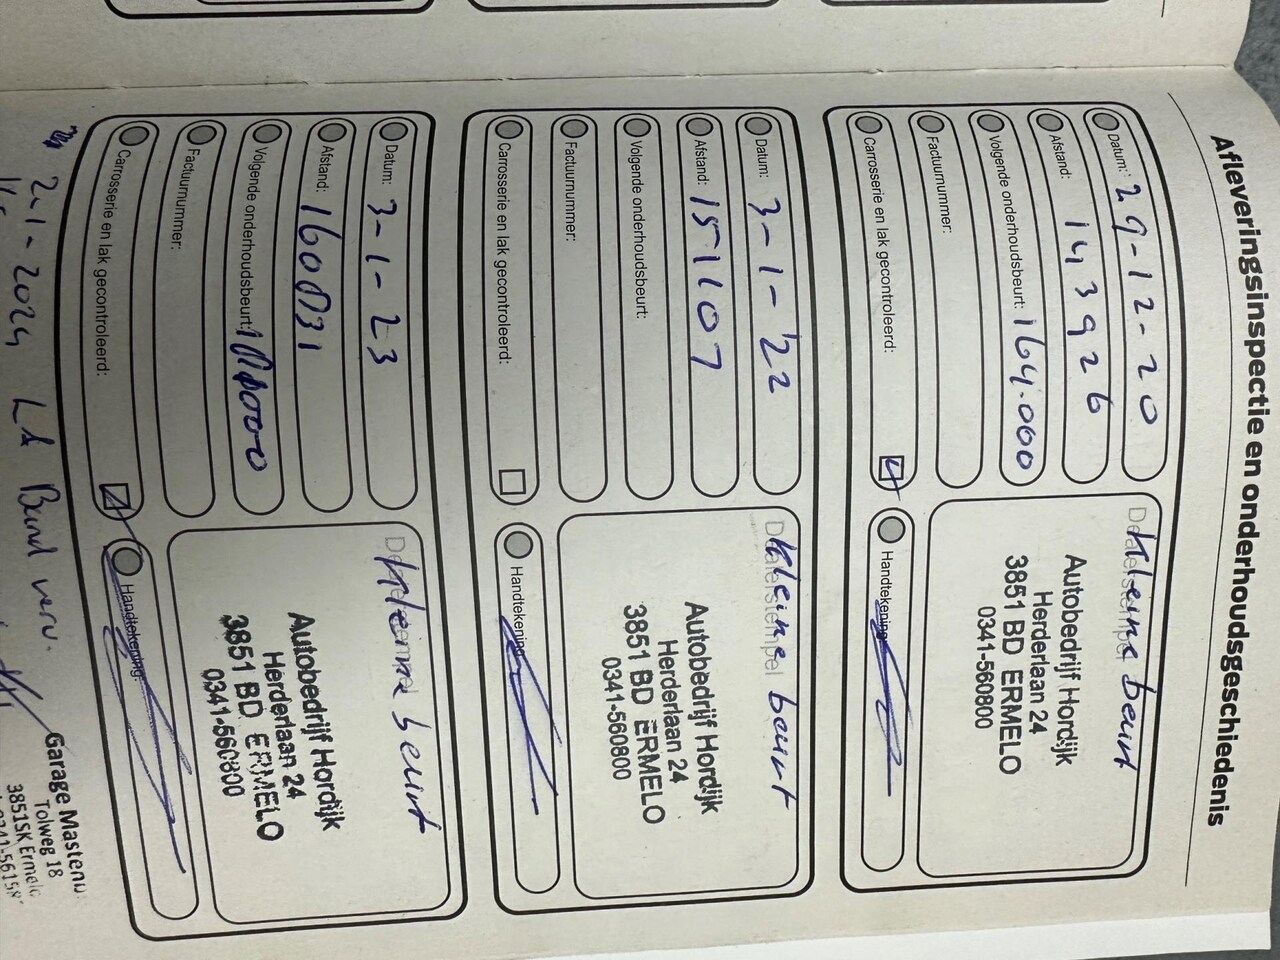 Afleveringsinspectie en onderhoudsgeschiedenis
Datum: 29-12-20
Afstand: 143926
Volgende onderhoudsbeurt: 164.000
Factuurnummer:
Carrosserie en lak gecontroleerd:
Dealerstempel
Kleine beurt
Autobedrijf Hordijk
Herderlaan 24
3851 BD ERMELO
0341-560800
Handtekening:
Datum: 3-1-'22
Afstand: 151107
Volgende onderhoudsbeurt:
Factuurnummer:
Carrosserie en lak gecontroleerd:
Dealerstempel
Kleine beurt
Autobedrijf Hordijk
Herderlaan 24
3851 BD ERMELO
0341-560800
Handtekening:
Datum: 3-1-23
Afstand: 160831
Volgende onderhoudsbeurt:
Factuurnummer:
Carrosserie en lak gecontroleerd:
Kleine beurt
Autobedrijf Hordijk
Herderlaan 24
3851 BD ERMELO
0341-560800
Handtekening:
2-1-2024 Band verv.
Garage
Tolweg 18
3851SK Ermelo